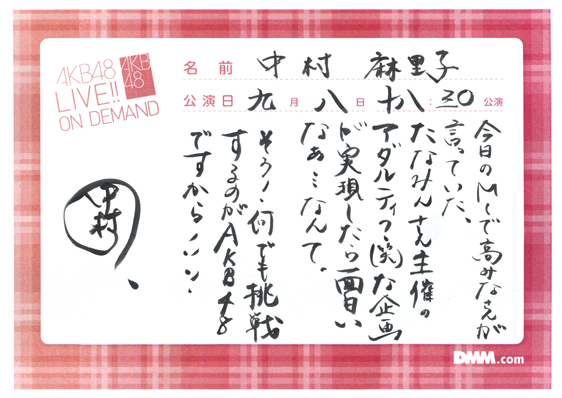 AKB48
LIVE!!
ON DEMAND
AKB
48
名前 中村 麻里子
公演日 九月八日 十八:30 公演
今日のMCで高みなさんが
言っていた、
たなみんさん主催の
アダルティな企画
が実現したら面白い
なぁ…なんて。
そう!何でも挑戦
するのがAKB48
ですから!!!
中村
DMM.com